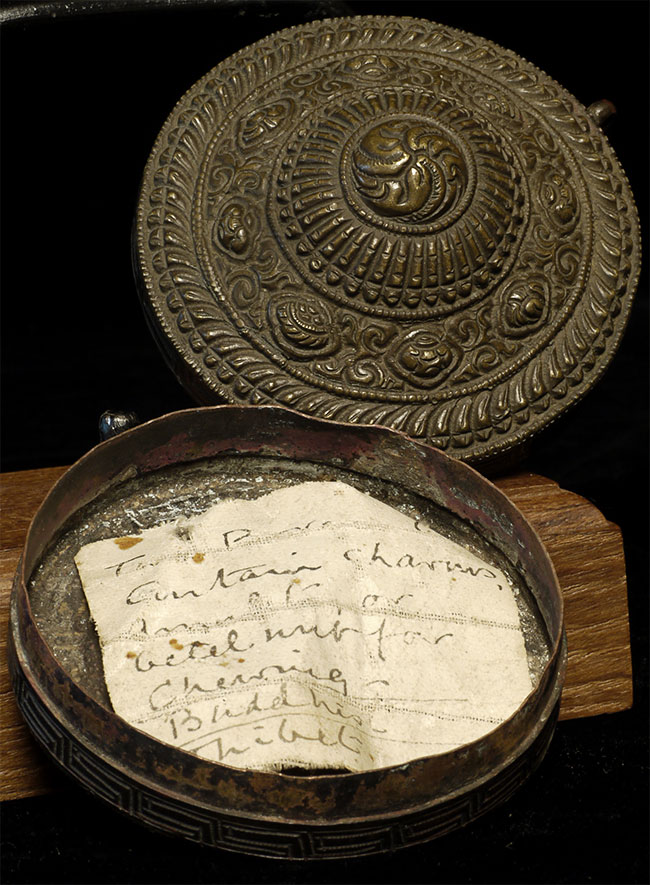 contain charms,
or
betel nut for
chewing
Buddhis
Thibet